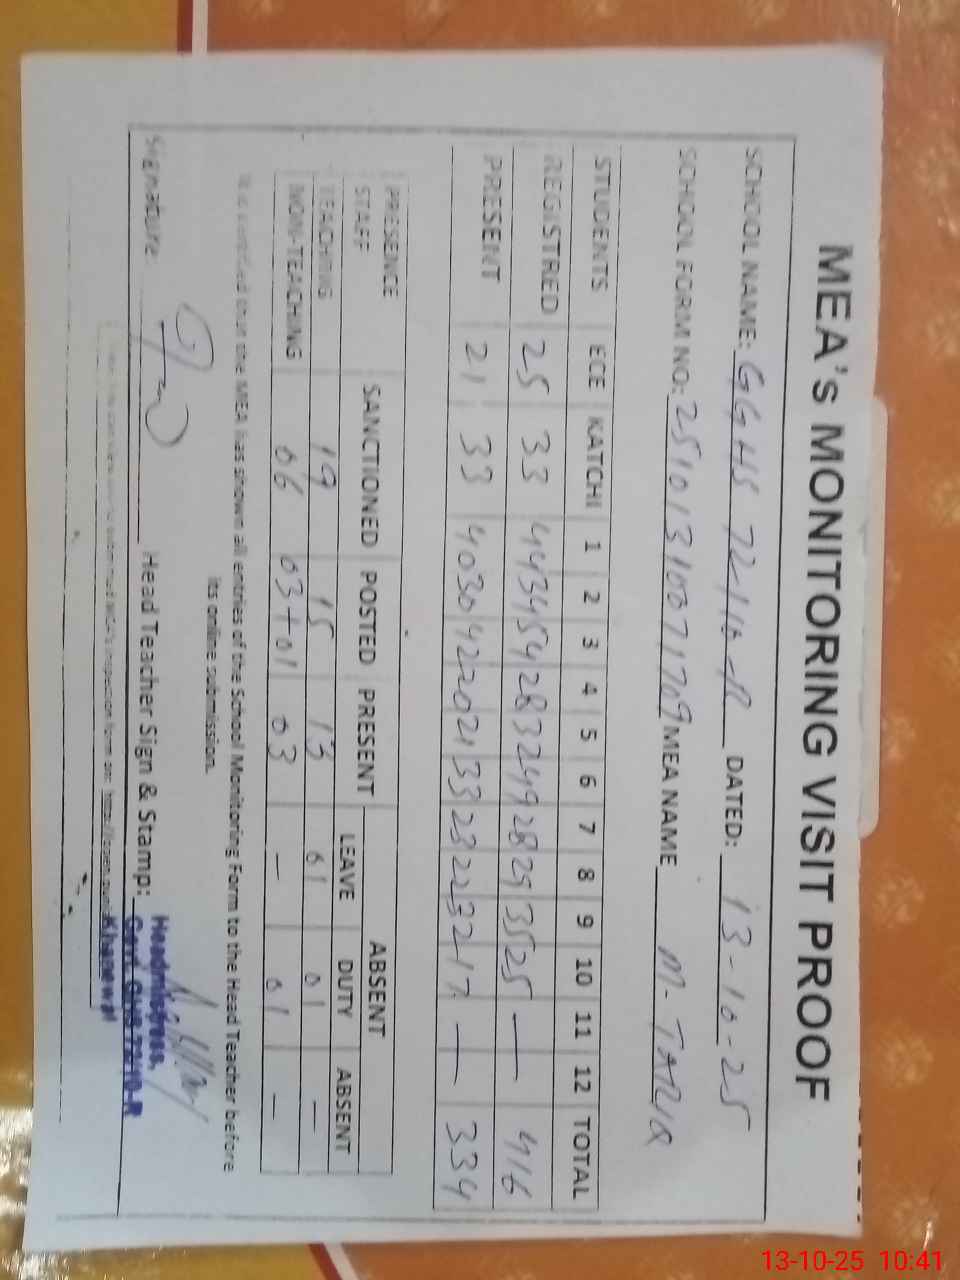 MEA's MONITORING VISIT PROOF
SCHOOL NAME: GGHS 72/10-R DATED: 13-10-25
SCHOOL FORM NO: MEA NAME M-TARIQ
STUDENTS ECE KATCHI 1 2 3 4 5 6 7 8 9 10 11 12 TOTAL
REGISTRED 25 33 44 34 54 28 32 49 28 29 35 25 — 416
PRESENT 21 33 40 30 42 20 21 33 23 22 32 17 — 334
PRESENCE ABSENT
STAFF SANCTIONED POSTED PRESENT LEAVE DUTY ABSENT
TEACHING 19 15 13 01 01 —
NON-TEACHING 06 03+01 03 — 01 —
that the MEA has shown all entries of the School Monitoring Form to the Head Teacher before
its online submission.
Signature: Head Teacher Sign & Stamp:
Headmistress,
Govt. GHS 72/10-R
Khanewal
13-10-25 10:41